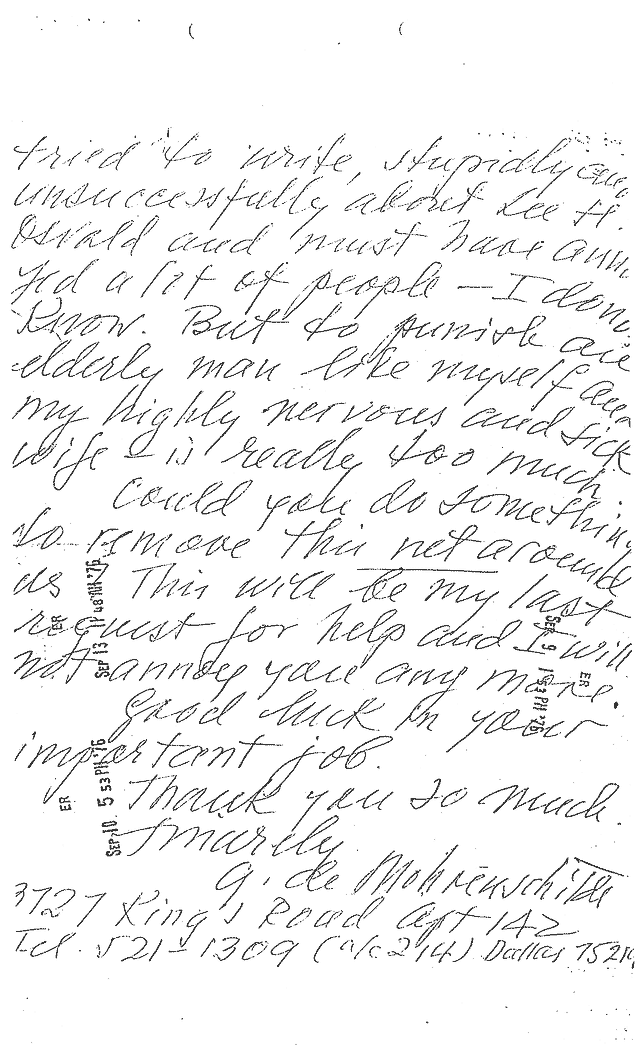 tried to write, stupidly and
unsuccessfully about Lee H.
Osvald and must have anno
yed a lot of people — I don't
know. But to punish an
elderly man like myself and
my highly nervous and sick
wife - is really too much.
Could you do something
to remove this net around
us This will be my last
request for help and I will
not annoy you any more.
Good luck in your
important job.
Thank you so much.
G. de Mohrenschildt
3727 King's Road Apt 142
Tel. 521-1309 (a/c 214) Dallas 75219
ER
SEP 13 11 48 AM '76
ER
SEP 10 5 53 PM '76
ER
SEP 9 1 53 PM '76